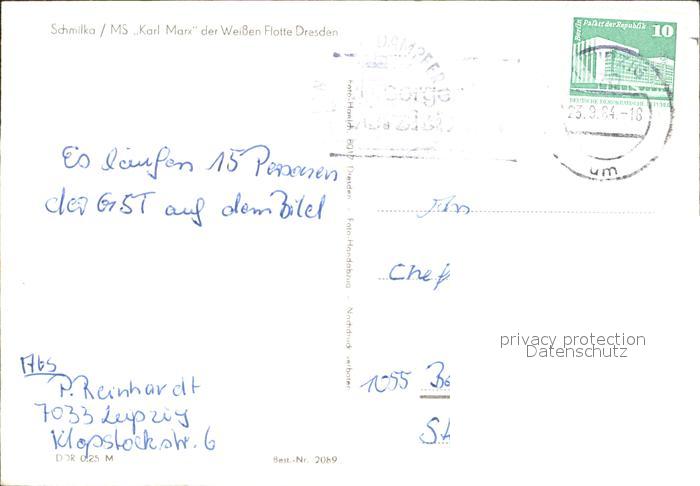 Schmilka / MS „Karl Marx" der Weißen Flotte Dresden
Berlin Palast der Republik 10
DEUTSCHE DEMOKRATISCHE REPUBLIK
23.9.84.-18
um
Es laufen 15 Personen
der GST auf dem Bild
Foto-Handabzug · Nachdruck verboten
Chef
privacy protection
Datenschutz
1055 Be
St
Abs
P. Reinhardt
7033 Leipzig
Klopstockstr. 6
DDR 0,25 M
Best.-Nr. 2089